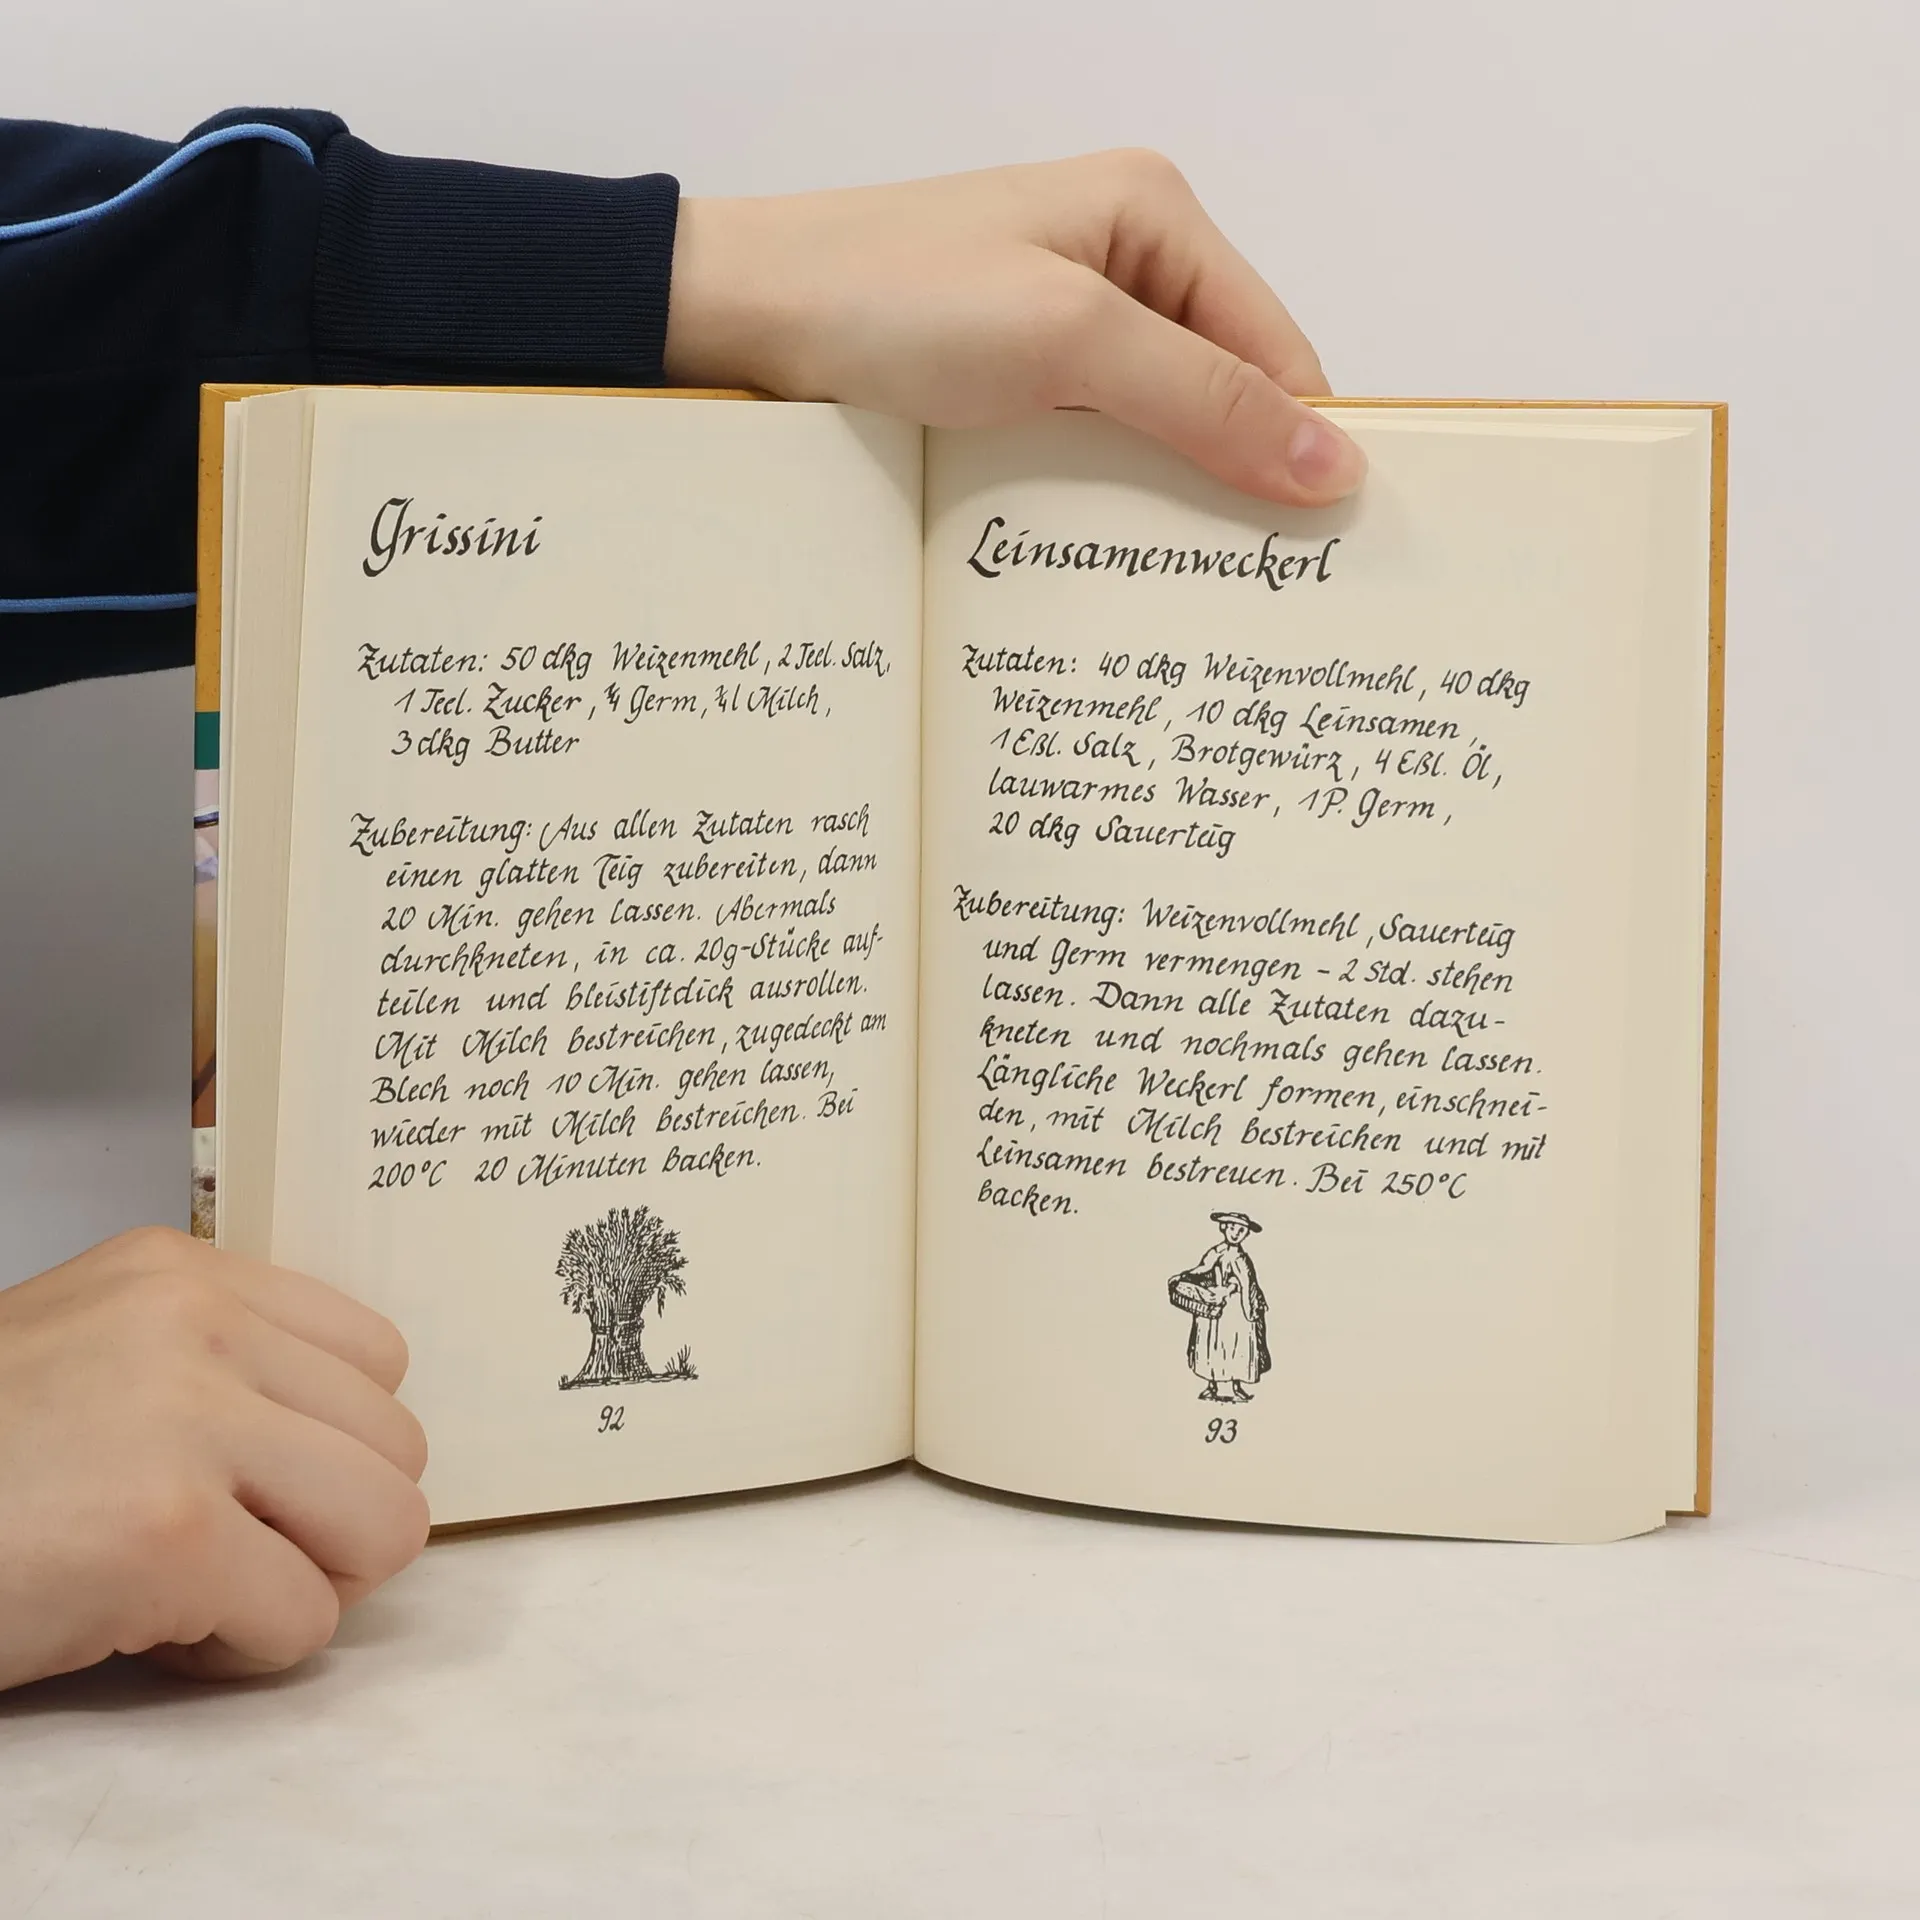 Grissini
Zutaten: 50 dkg Weizenmehl, 2 Teel. Salz,
1 Teel. Zucker, Germ, l Milch,
3 dkg Butter
Zubereitung: Aus allen Zutaten rasch
einen glatten Teig zubereiten, dann
20 Min. gehen lassen. Abermals
durchkneten, in ca. 20g-Stücke auf-
teilen und bleistiftdick ausrollen.
Mit Milch bestreichen, zugedeckt am
Blech noch 10 Min. gehen lassen,
wieder mit Milch bestreichen. Bei
200°C 20 Minuten backen.
92
Leinsamenweckerl
Zutaten: 40 dkg Weizenvollmehl, 40 dkg
Weizenmehl, 10 dkg Leinsamen,
1 Eßl. Salz, Brotgewürz, 4 Eßl. Öl,
lauwarmes Wasser, 1 P. Germ,
20 dkg Sauerteig
Zubereitung: Weizenvollmehl, Sauerteig
und Germ vermengen - 2 Std. stehen
lassen. Dann alle Zutaten dazu-
kneten und nochmals gehen lassen.
Längliche Weckerl formen, einschnei-
den, mit Milch bestreichen und mit
Leinsamen bestreuen. Bei 250°C
backen.
93